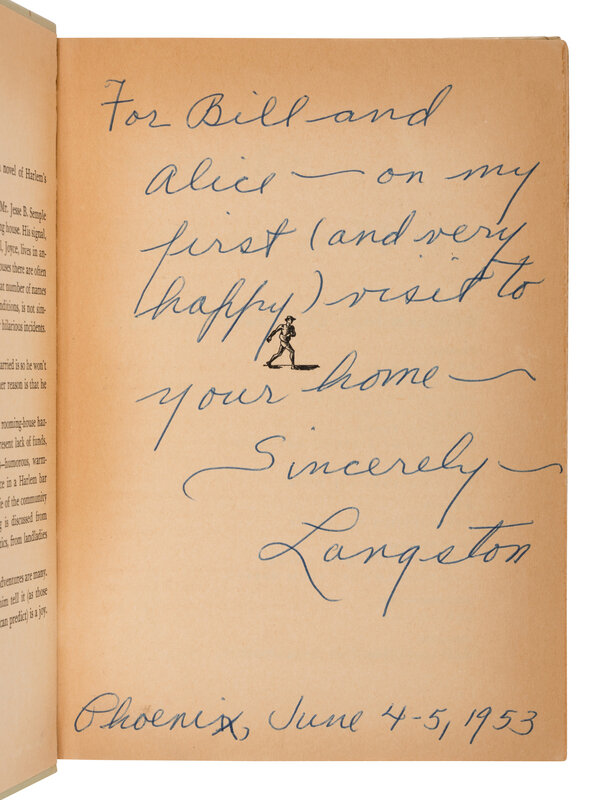 novel of Harlem's
Mr. Jesse B. Semple
ng house. His signal,
l, Joyce, lives in an-
ouses there are often
at number of names
onditions, is not sim-
hilarious incidents.
arried is so he won't
er reason is that he
rooming-house han-
resent lack of funds,
—humorous, warm-
ce in a Harlem bar
e of the community
g is discussed from
tics, from landladies
dventures are many.
him tell it (as those
can predict) is a joy.
For Bill and
Alice — on my
first (and very
happy) visit to
your home —
Sincerely —
Langston
Phoenix, June 4-5, 1953